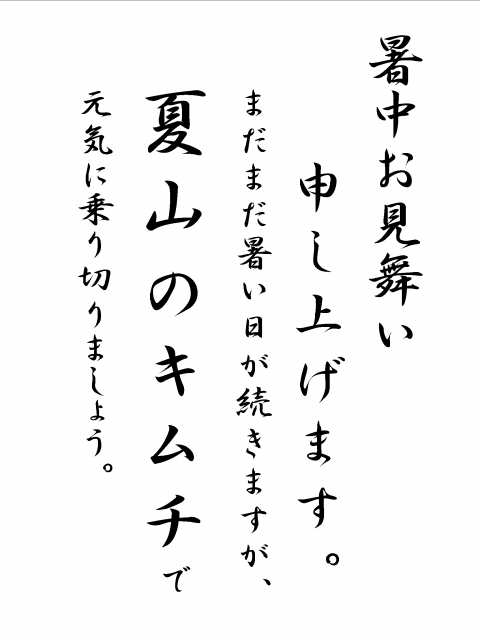 暑中お見舞い
申し上げます。
まだまだ暑い日が続きますが、
夏山のキムチで
元気に乗り切りましょう。